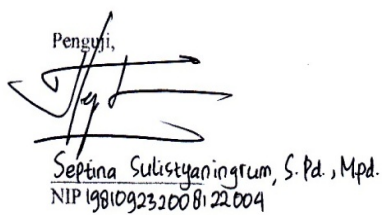 Penguji,
Septina Sulistyaningrum, S.Pd., M.pd.
NIP 198109232008122004